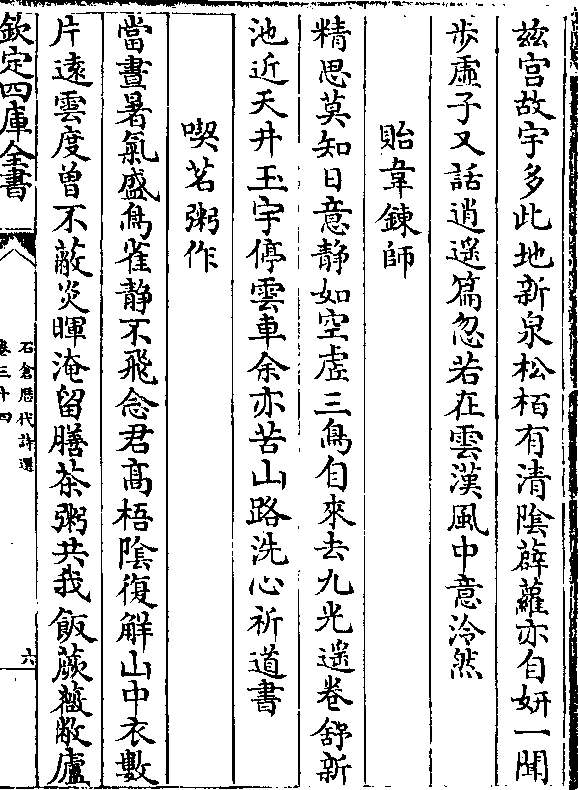 兹宫故宇多此地新泉松栢有清陰薜蘿亦自妍一聞
步虛子又話逍遥篇忽若在雲漢風中意泠然
貽韋鍊師
精思莫知日意静如空虛三鳥自來去九光遥卷舒新
池近天井玉宇停雲車余亦苦山路洗心祈道書
喫茗粥作
當晝暑氣盛鳥雀静不飛念君高梧陰復解山中衣數
片遠雲度曾不蔽炎暉淹留膳茶粥共我飯蕨薇敝廬
欽定四庫全書
石倉歷代詩選
卷三十四
六